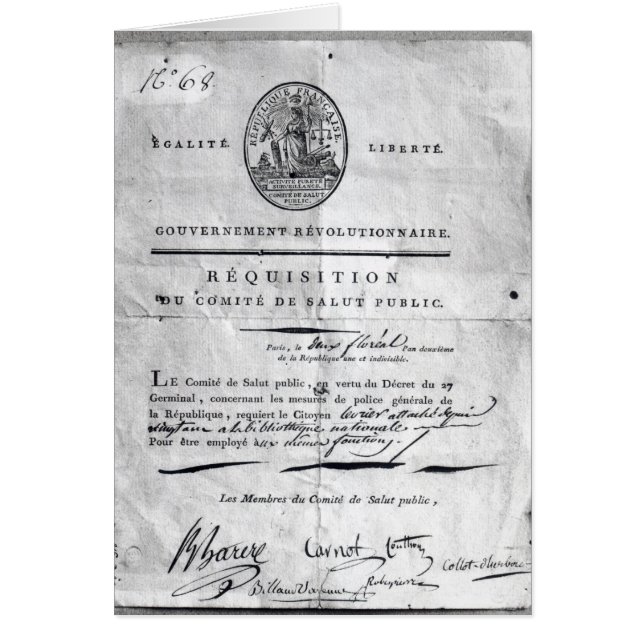 No. 68.
RÉPUBLIQUE FRANÇAISE.
ACTIVITÉ PURETÉ
SURVEILLANCE.
COMITÉ DE SALUT
PUBLIC.
ÉGALITÉ. LIBERTÉ.
GOUVERNEMENT RÉVOLUTIONNAIRE.
RÉQUISITION
DU COMITÉ DE SALUT PUBLIC.
Paris, le deux floréal l'an deuxième
de la République une et indivisible.
LE Comité de Salut public, en vertu du Décret du 27
Germinal, concernant les mesures de police générale de
la République, requiert le Citoyen attaché depuis
vingt ans a la bibliothèque nationale
Pour être employé aux mêmes fonctions.
Les Membres du Comité de Salut public,
B Barère Carnot Couthon Collot-d'herbois
Billaud Varenne Robespierre